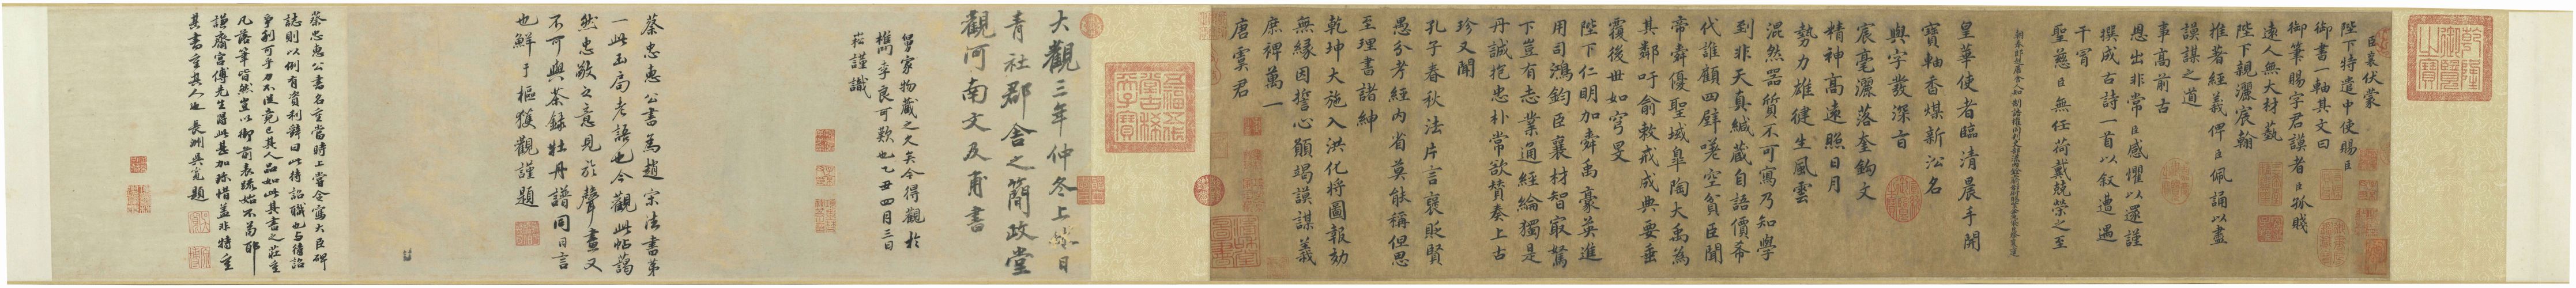 乾隆御覽之寶
臣襄伏蒙
陛下特遣中使賜臣
御書一軸其文曰
御筆賜字君謨者臣孤賤
遠人無大材藝
陛下親灑宸翰
推著經義俾臣佩誦以盡
謨謀之道
事高前古
恩出非常臣感懼以還謹
撰成古詩一首以叙遭遇
干冒
聖慈臣無任荷戴兢榮之至
皇華使者臨清晨手開
寶軸香煤新沄名
與字發深旨
宸毫灑落奎鈎文
精神高遠照日月
勢力雄健生風雲
混然器質不可寫乃知學
到非天真緘藏自語價希
代誰顧四壁嗟空貧臣聞
帝舜優聖域皐陶大禹為
其鄰吁俞敕戒成典要垂
覆後世如穹旻
陛下仁明加舜禹豪英進
用司鴻鈞臣襄材智㝡駑
下豈有志業通經綸獨是
丹誠抱忠朴常欲贊奏上古
珍又聞
孔子春秋法片言褒貶賢
愚分考經內省莫能稱但思
至理書諸紳
乾坤大施入洪化將圖報効
無緣因誓心願竭謨謀義
庶裨萬一
唐虞君
五福五代堂古稀天子寶
大觀三年仲冬上休日
青社郡舍之簡政堂
觀河南文及甫書
曾家物藏之久矣今得觀於
樵李良可歎也乙丑四月三日
崧謹識
蔡忠惠公書為趙宋法書第
一此玉局老語也今觀此帖藹
然忠敬之意見於聲畫又
不可與茶錄牡丹譜同日言
也鮮于樞獲觀謹題
蔡忠惠公書名重當時上嘗令寫大臣碑
誌則以例有資利辭曰此待詔職也与待詔
爭利可乎力不從竟已其人品如此其書之莊重
凡落筆皆然豈以御前表疏始不苟耶
謙齋宮傅先生得此甚加珍惜蓋非特重
其書重其人也 長洲吳寬題